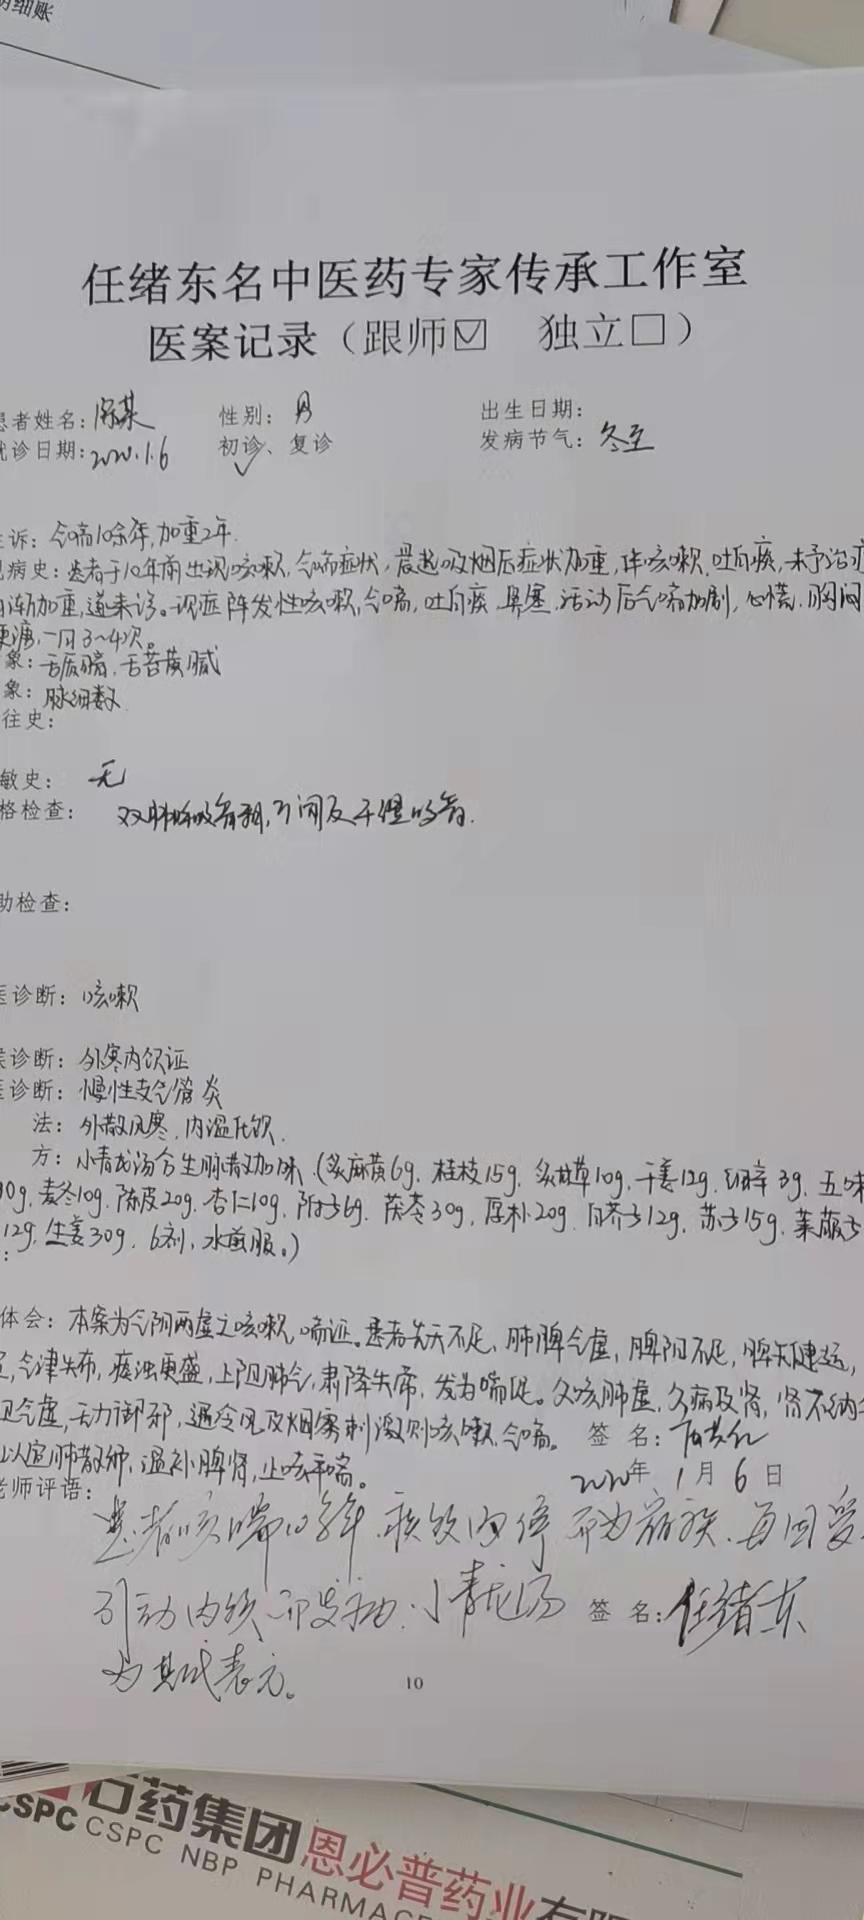 明细账
任绪东名中医药专家传承工作室
医案记录（跟师☑ 独立□）
患者姓名：陈某 性别：男 出生日期：
就诊日期：2020.1.6 初诊、复诊 发病节气：冬至
主诉：气喘10余年，加重2年．
现病史：患者于10年前出现咳嗽，气喘症状，晨起吸烟后症状加重，伴咳嗽，吐白痰，未予治疗
渐加重，遂来诊。现症阵发性咳嗽，气喘，吐白痰，鼻塞，活动后气喘加剧，心慌，胸闷
便溏，一日3～4次。
象：舌质暗，舌苔黄腻
象：脉细数
往史：
敏史：无
格检查：双肺呼吸音粗，可闻及干湿啰音．
助检查：
医诊断：咳嗽
诊断：外寒内饮证
医诊断：慢性支气管炎
法：外散风寒，内温化饮．
方：小青龙汤合生脉散加味（炙麻黄6g，桂枝15g，炙甘草10g，干姜12g，细辛3g，五味
10g，麦冬10g，陈皮20g，杏仁10g，附子6g，茯苓30g，厚朴20g，白芥子12g，苏子15g，莱菔子
12g，生姜30g，6剂，水煎服。）
体会：本案为气阴两虚之咳嗽，喘证。患者先天不足，肺脾气虚，脾阳不足，脾失健运，
气津失布，痰浊更盛，上阻肺气，肃降失常，发为喘促。久咳肺虚，久病及肾，肾不纳气
卫气虚，无力御邪，遇冷风及烟雾刺激则咳嗽，气喘。 签 名：
以宣肺散邪，温补脾肾，止咳平喘。 2020年 1月 6日
老师评语：
患者咳喘10余年，痰饮内停 而为宿疾，每因受
引动内饮而发病．小青龙汤 签 名：任绪东
为其代表方。
10
石药集团恩必普药业有限
CSPC CSPC NBP PHARMAC